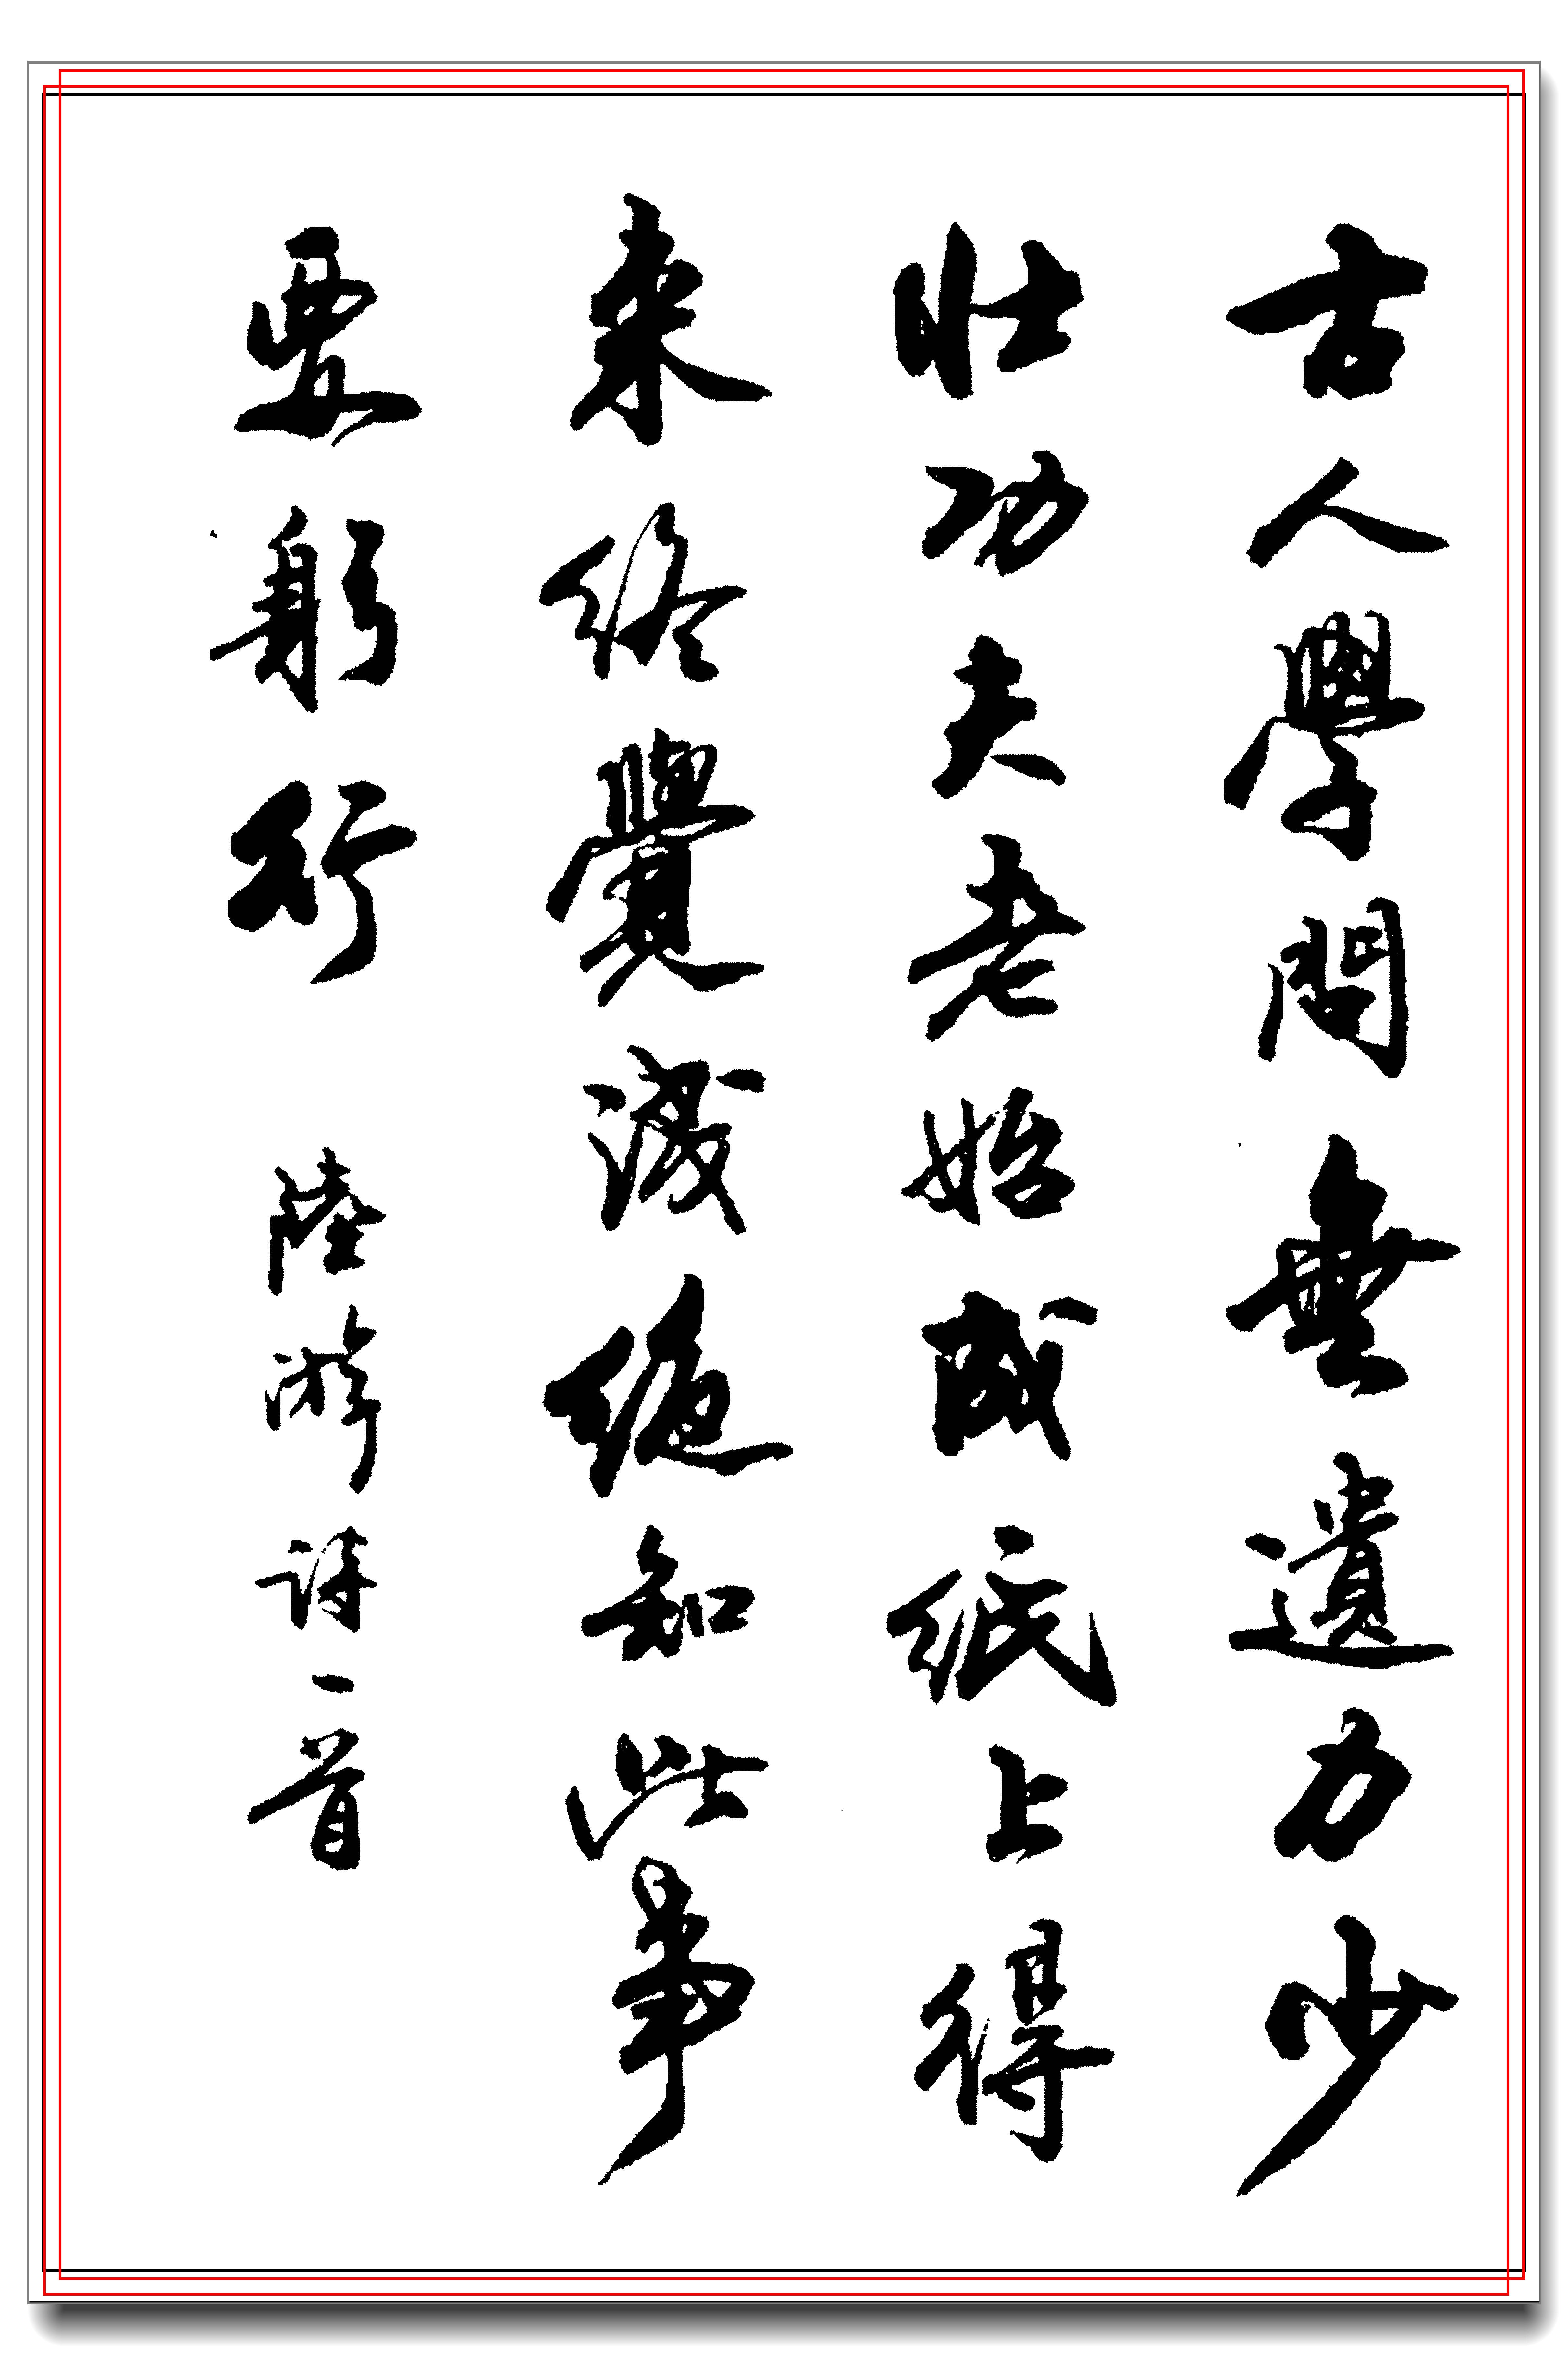 古人學問無遺力少
壯功夫老始成紙上得
来終覺淺絶知此事
要躬行 陸游詩一首